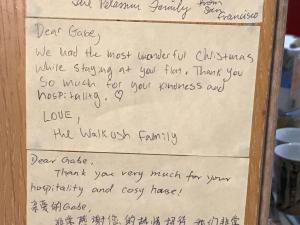 The Pelassini Family from San Francisco
Dear Gabe,
We had the most wonderful Christmas
while staying at your flat. Thank you
so much for your kindness and
hospitality. ♡
LOVE,
the Walkush Family
Dear Gabe,
Thank you very much for your
hospitality and cosy house!
亲爱的Gabe,
非常感谢您的热情招待